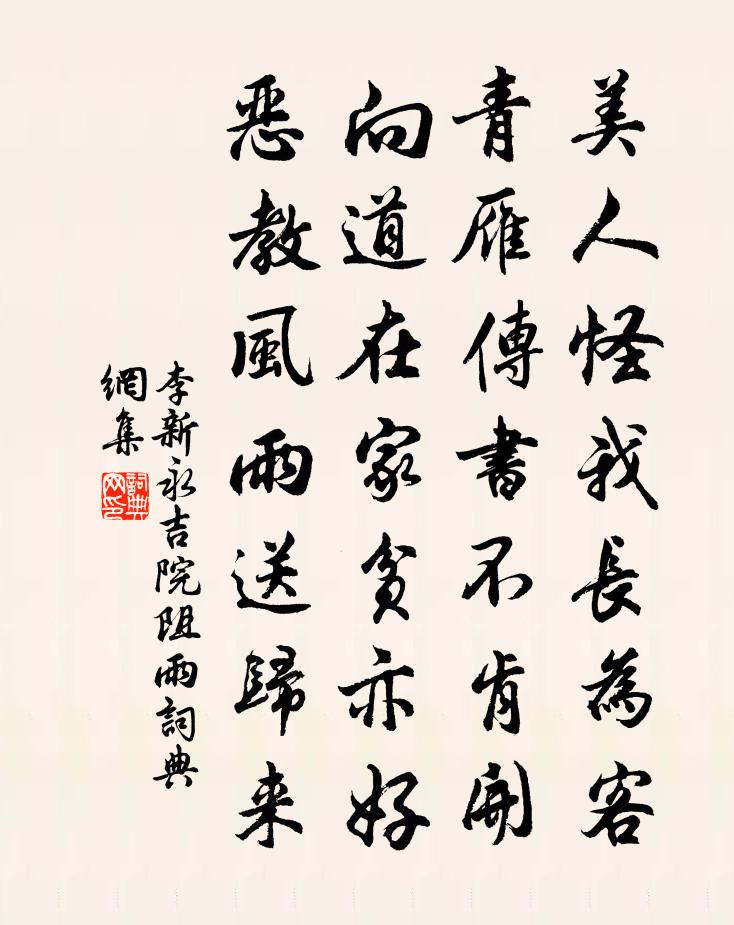 美人怪我長為客
青雁傳書不肯開
向道在家貧亦好
惡教風雨送歸来
李新永吉院阻雨詞典
網集
詞典
网印